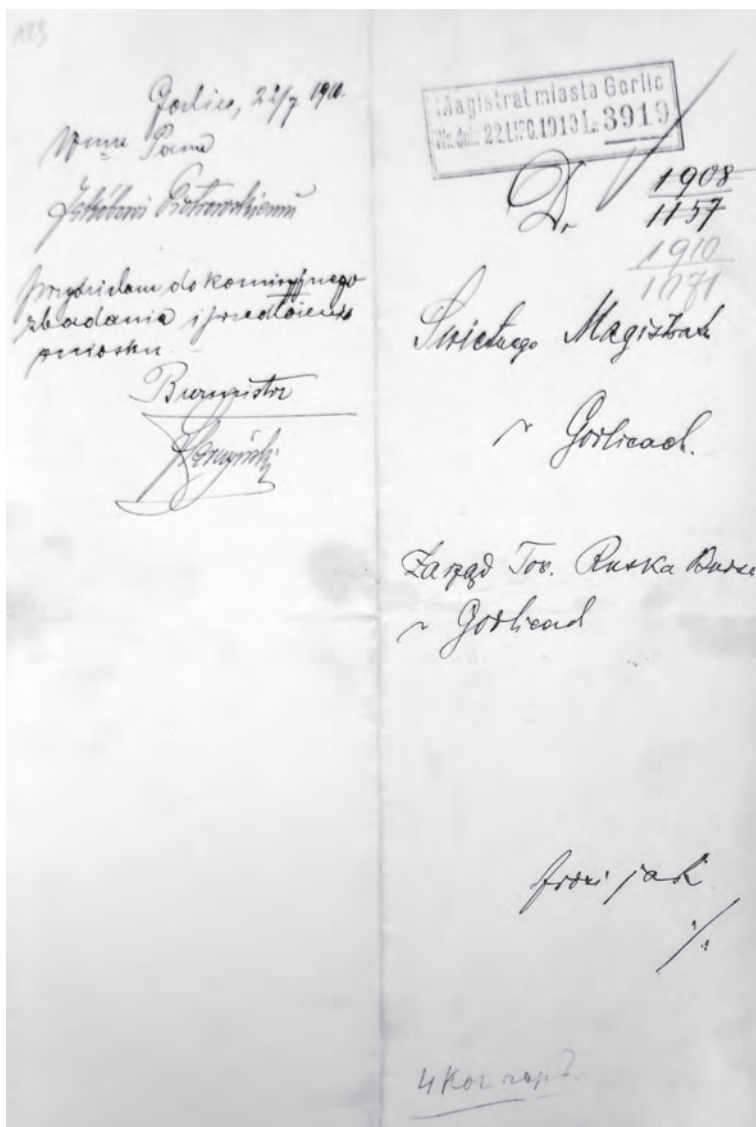 Gorlice, 22/7 1910.
Wmu Panu
Jakóbowi Piotrowskiemu
przydzielam do komisyjnego
zbadania i przedłożenia
wniosku
Burmistrz
Magistrat miasta Gorlic
Wn. dni. 22 LIPC. 1910 L: 3919
D. 1908
1157
1910
1071
Świetnego Magistratu
w Gorlicach.
Zarząd Tow. Ruska Bursa
w Gorlicach
prosi jak
%